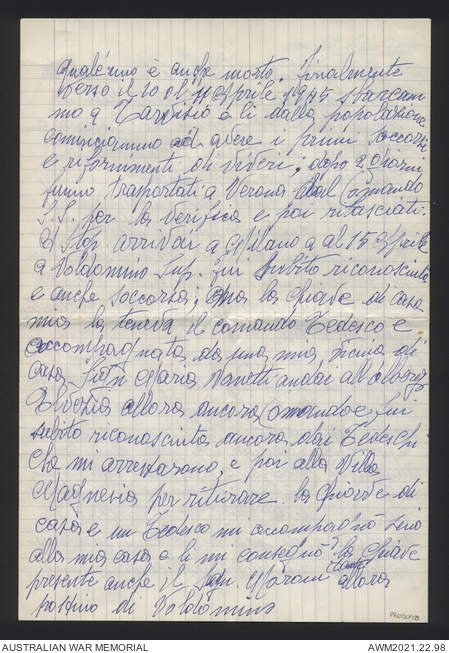 qualcuno è anche morto. Finalmente
verso il 10 o 11 Aprile 1945 sbarcam
mo a Tarvisio e lì dalla popolazione
cominciammo ad avere i primi soccorsi
e rifornimenti di viveri, dopo 2 giorni
fummo trasportati a Verona dal Comando
S.S. per la verifica e poi rilasciati.
arrivai a Milano e al 15 Aprile
a Valdomino Sup. fui subito riconosciuta
e anche soccorsa; ma la chiave di casa
mia la teneva il comando Tedesco e
accompagnata da una mia vicina di
casa Maria andai all albergo
Elvezia allora ancora Comando e fui
subito riconosciuta ancora dai Tedeschi
che mi arrestarono, e poi alla Villa
Magnesia per ritirare la chiave di
casa e un Tedesco mi accompagnò sino
alla mia casa e lì mi consegnò la chiave
presente anche il allora
postino di Valdomino
PR03098
AUSTRALIAN WAR MEMORIAL
AWM2021.22.98